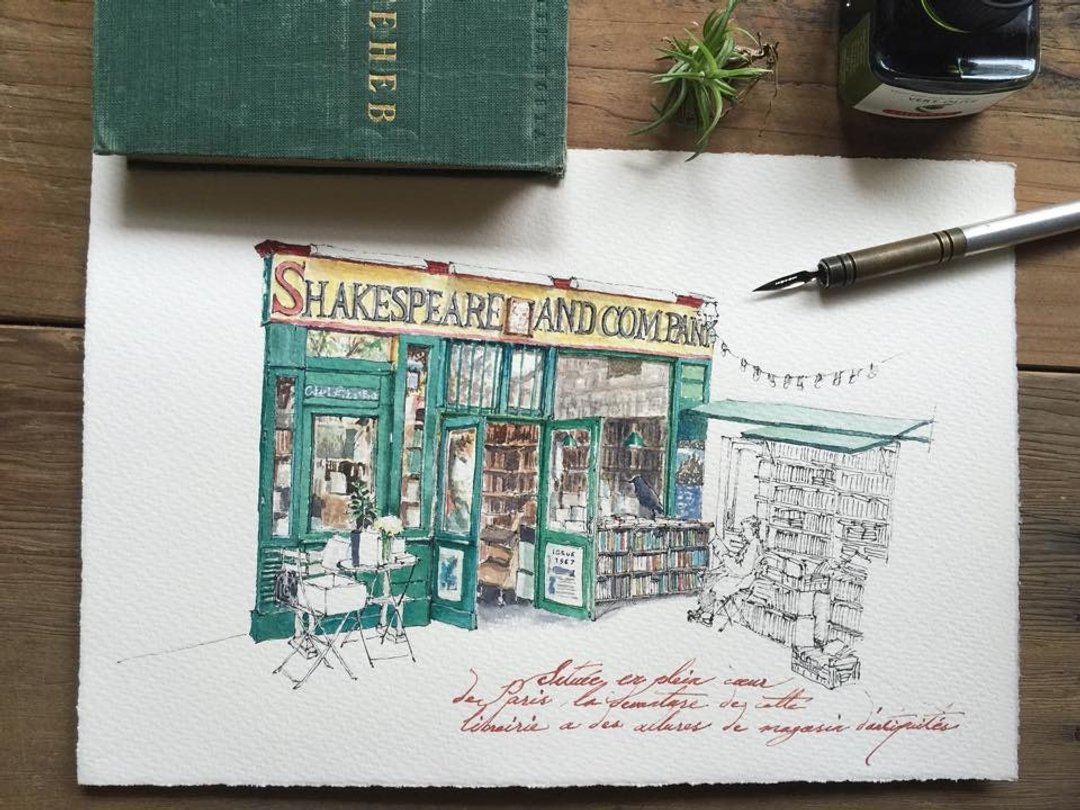 TEHEB
VERT
SHAKESPEARE AND COMPANY
ISSUE
1967
Située en plein cœur
de Paris, la devanture de cette
librairie a des allures de magasin d'antiquités